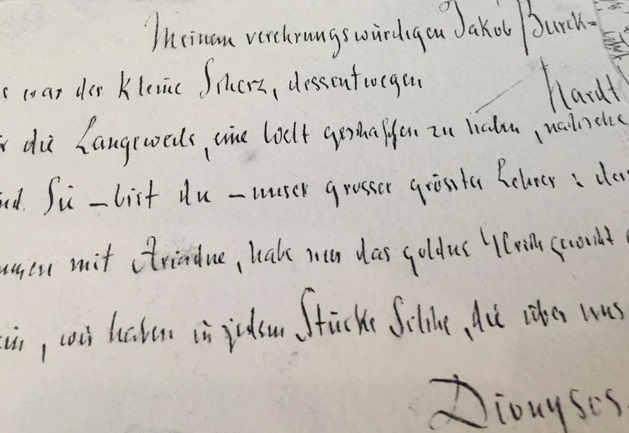 Meinem verehrungswürdigen Jakob Burck=
hardt
s war der kleine Scherz, dessentwegen
die Langeweile, eine Welt geschaffen zu haben, nachsehe
Sie – bist du – unser grosser grösster Lehrer: den
mit Ariadne, habe nur das goldne Gleichgewicht
wir haben in jedem Stücke Solche, die über uns
Dionysos.